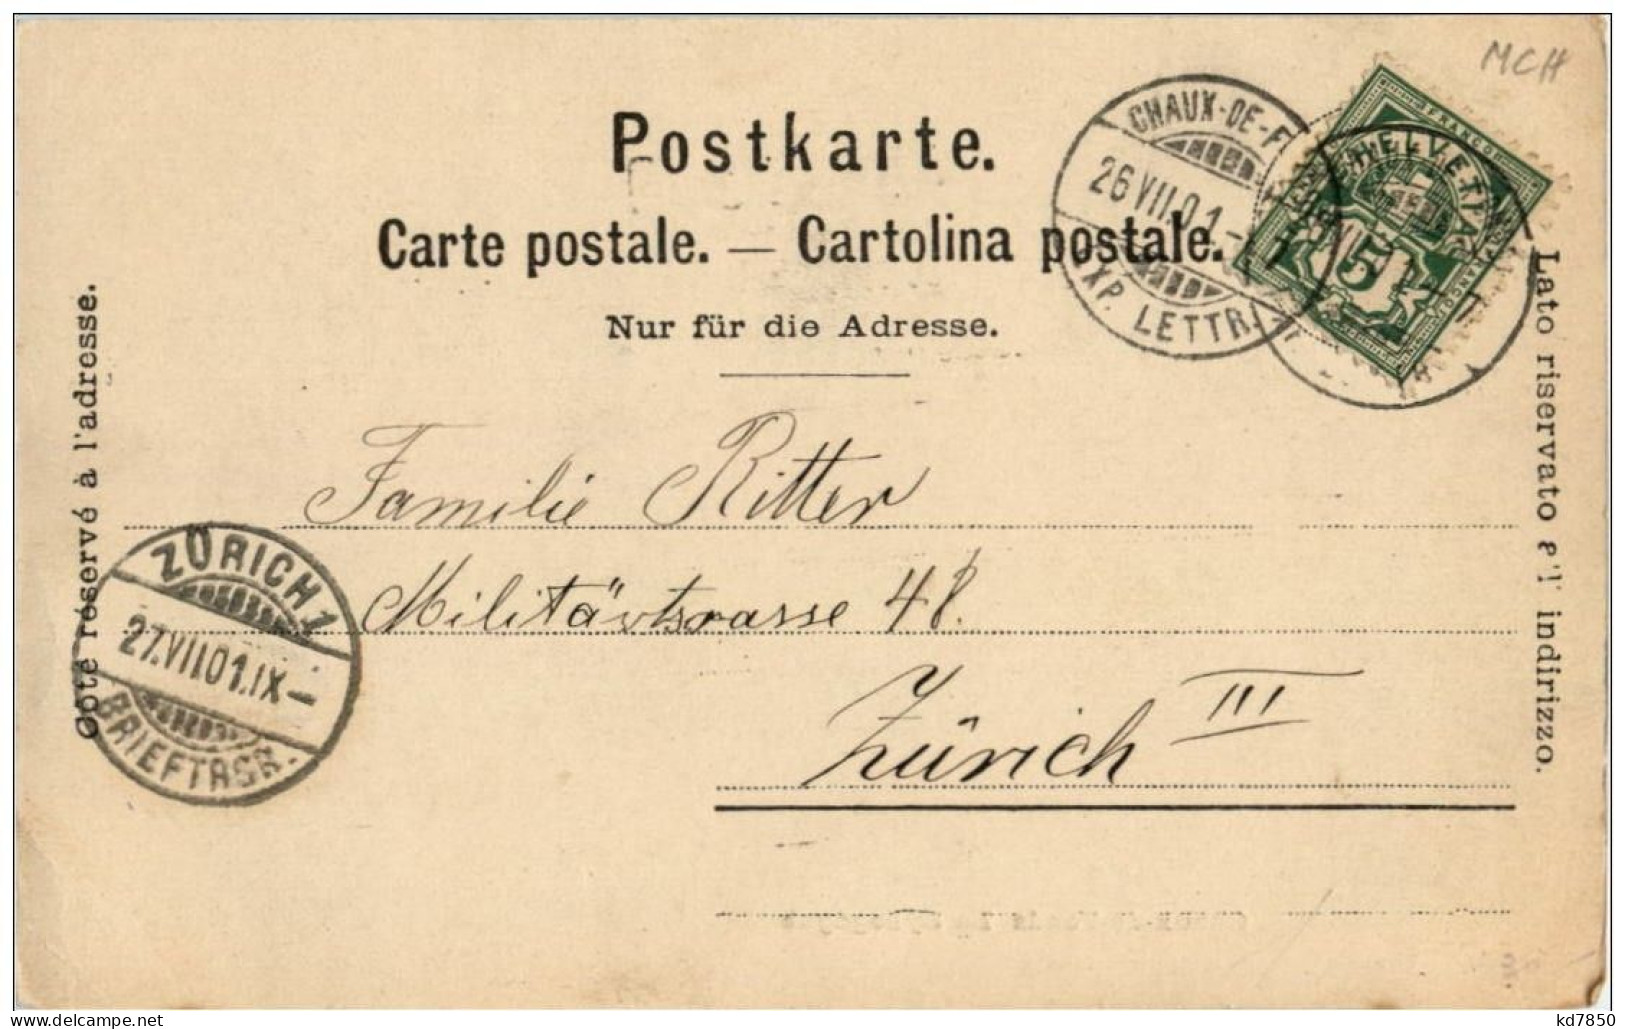 MCH
Postkarte.
Carte postale. — Cartolina postale.
Nur für die Adresse.
CHAUX-DE-F
26 VII.01-7
EXP. LETTR.
FRANCO
HELVETIA
5
FRANCO
Côté réservé à l'adresse.
Lato riservato all' indirizzo.
Familie Ritter
Militärtsrasse 48.
Zürich III
ZÜRICH 1
27.VII.01.IX—
BRIEFTRGR.
www.delcampe.net
kd7850